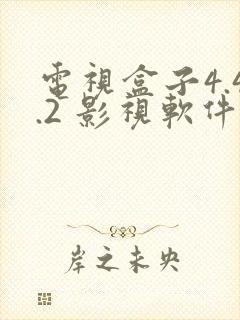 電視盒子4.4
.2 影視軟件
岸之未央